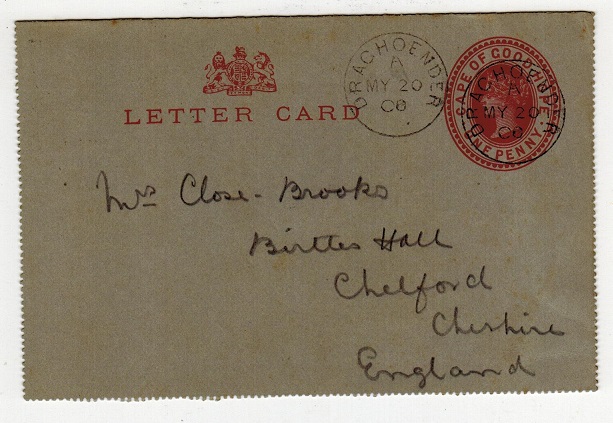 LETTER CARD
DRAGHOENDER
A
MY 20
CAPE OF GOOD HOPE
ONE PENNY
DRAGHOENDER
A
MY 20
Mrs Close-Brooks
Birtles Hall
Chelford
Cheshire
England